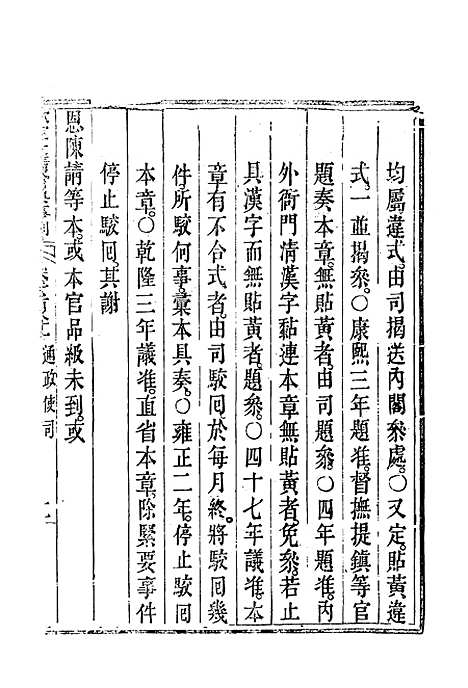 均屬違式由司揭送內閣叅處○又定貼黃違
式一並揭叅○康熙三年題准督撫提鎮等官
題奏本章無貼黃者由司題叅○四年題准內
外衙門淸漢字黏連本章無貼黃者免叅若止
具漢字而無貼黃者題叅○四十七年議准本
章有不合式者由司駁囘於每月終將駁囘幾
件所駁何事彙本具奏○雍正二年停止駁囘
本章○乾隆三年議准直省本章除緊要事件
停止駁囘其謝
恩陳請等本或本官品級未到或
通政使司